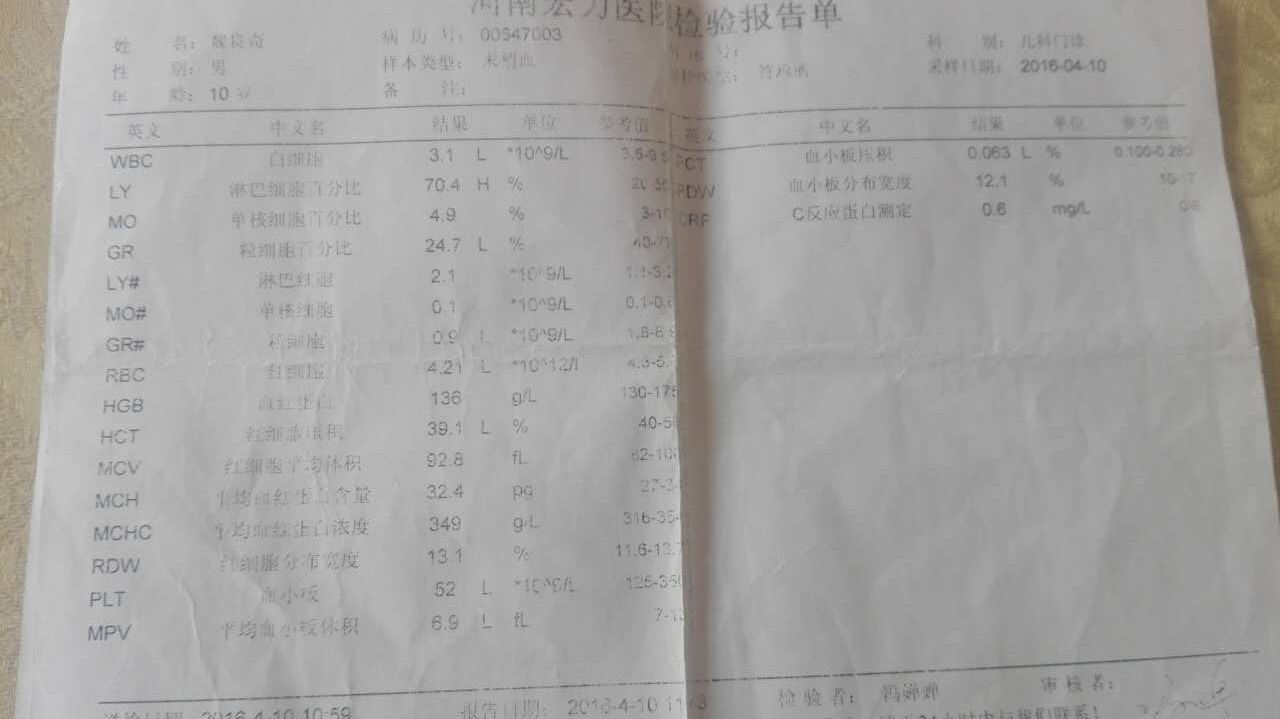 河南宏力医院检验报告单
姓 名: 魏良奇 病 历 号: 00647003 科 别: 儿科门诊
性 别: 男 样本类型: 末梢血 采样日期: 2016-04-10
年 龄: 10 岁 备 注:
英文 中文名 结果 单位 参考值 英文 中文名 结果 单位 参考值
WBC 白细胞 3.1 L *10^9/L 3.5-9.5 PCT 血小板压积 0.063 L % 0.100-0.280
LY 淋巴细胞百分比 70.4 H % 20-50 PDW 血小板分布宽度 12.1 % 10-17
MO 单核细胞百分比 4.9 % 3-10 CRP C反应蛋白测定 0.6 mg/L
GR 粒细胞百分比 24.7 L %
LY# 淋巴细胞 2.1 *10^9/L 1.1-3.2
MO# 单核细胞 0.1 *10^9/L 0.1-0.6
GR# 粒细胞 0.9 L *10^9/L
RBC 红细胞 4.21 L *10^12/l
HGB 血红蛋白 136 g/L 130-175
HCT 红细胞压积 39.1 L % 40-50
MCV 红细胞平均体积 92.8 fL 82-100
MCH 平均血红蛋白含量 32.4 pg
MCHC 平均血红蛋白浓度 349 g/L
RDW 红细胞分布宽度 13.1 %
PLT 血小板 52 L *10^9/L 125-350
MPV 平均血小板体积 6.9 L fL
送检日期 2016-4-10 10:59 报告日期: 2016-4-10 检 验 者: 冯婵婵 审 核 者:
24小时内与我们联系!